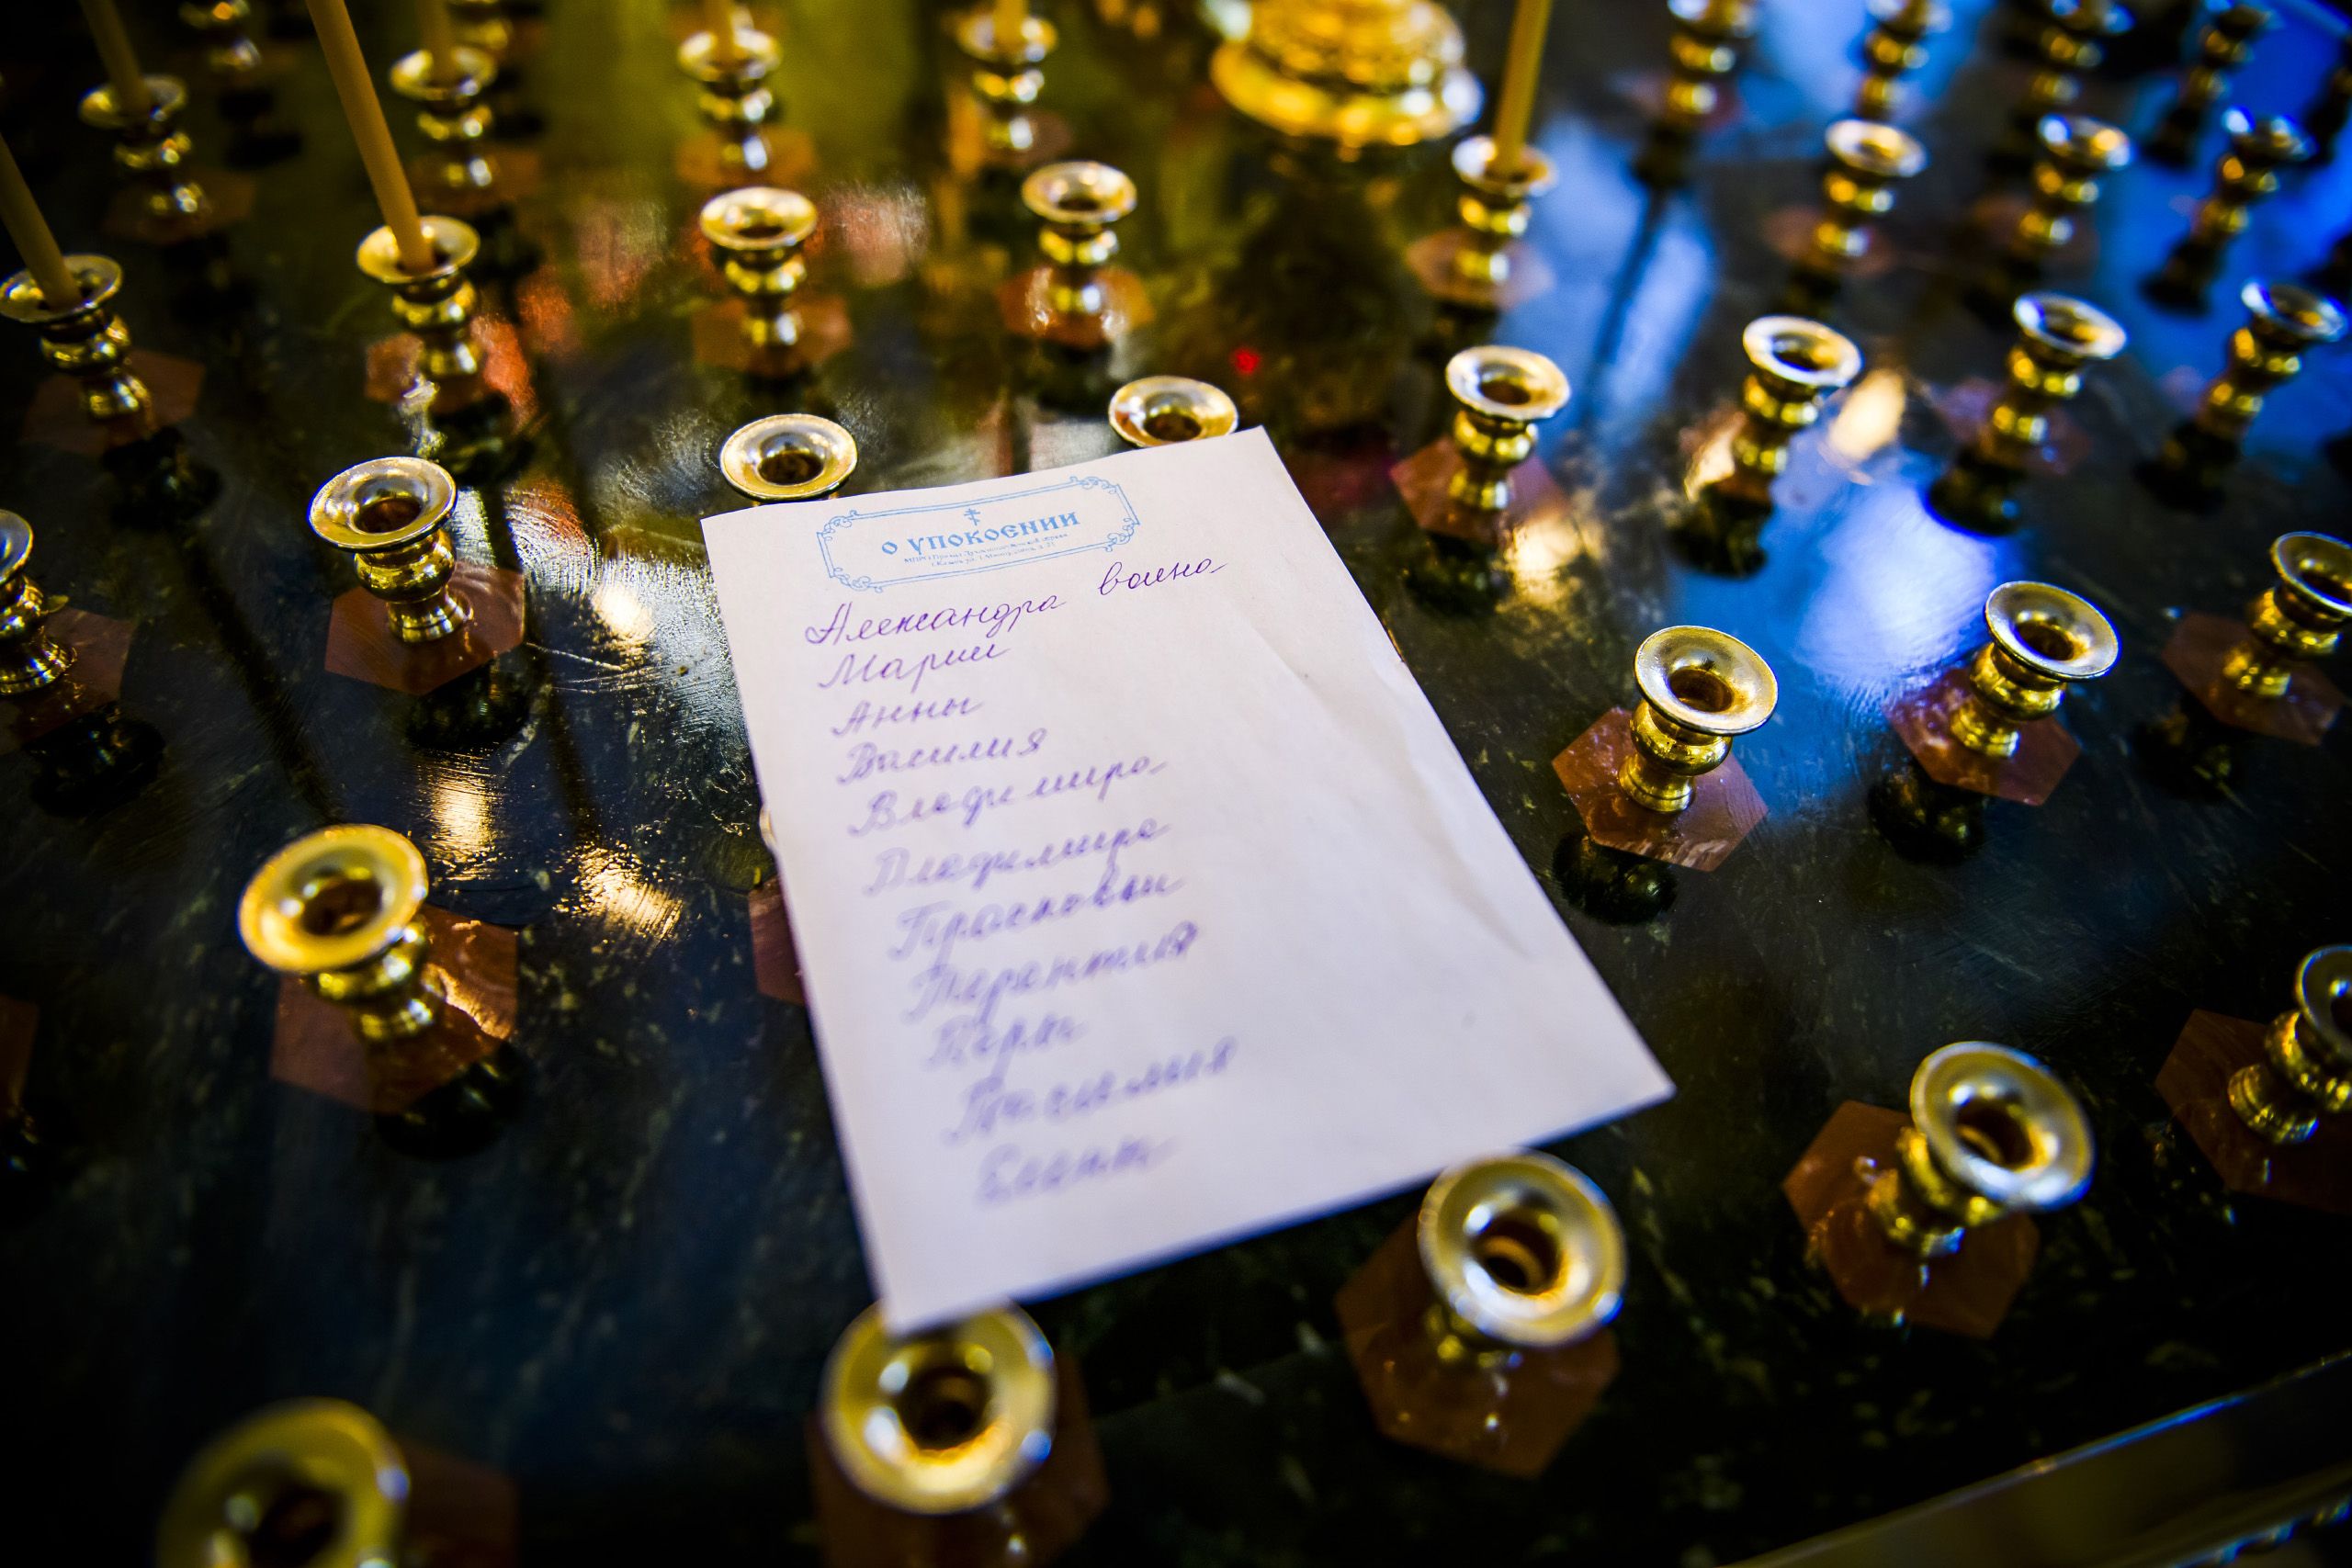 О УПОКОЕНИИ
Александра воина
Марии
Анны
Василия
Владимира
Владимира
Прасковьи
Терентия
Веры
Василия